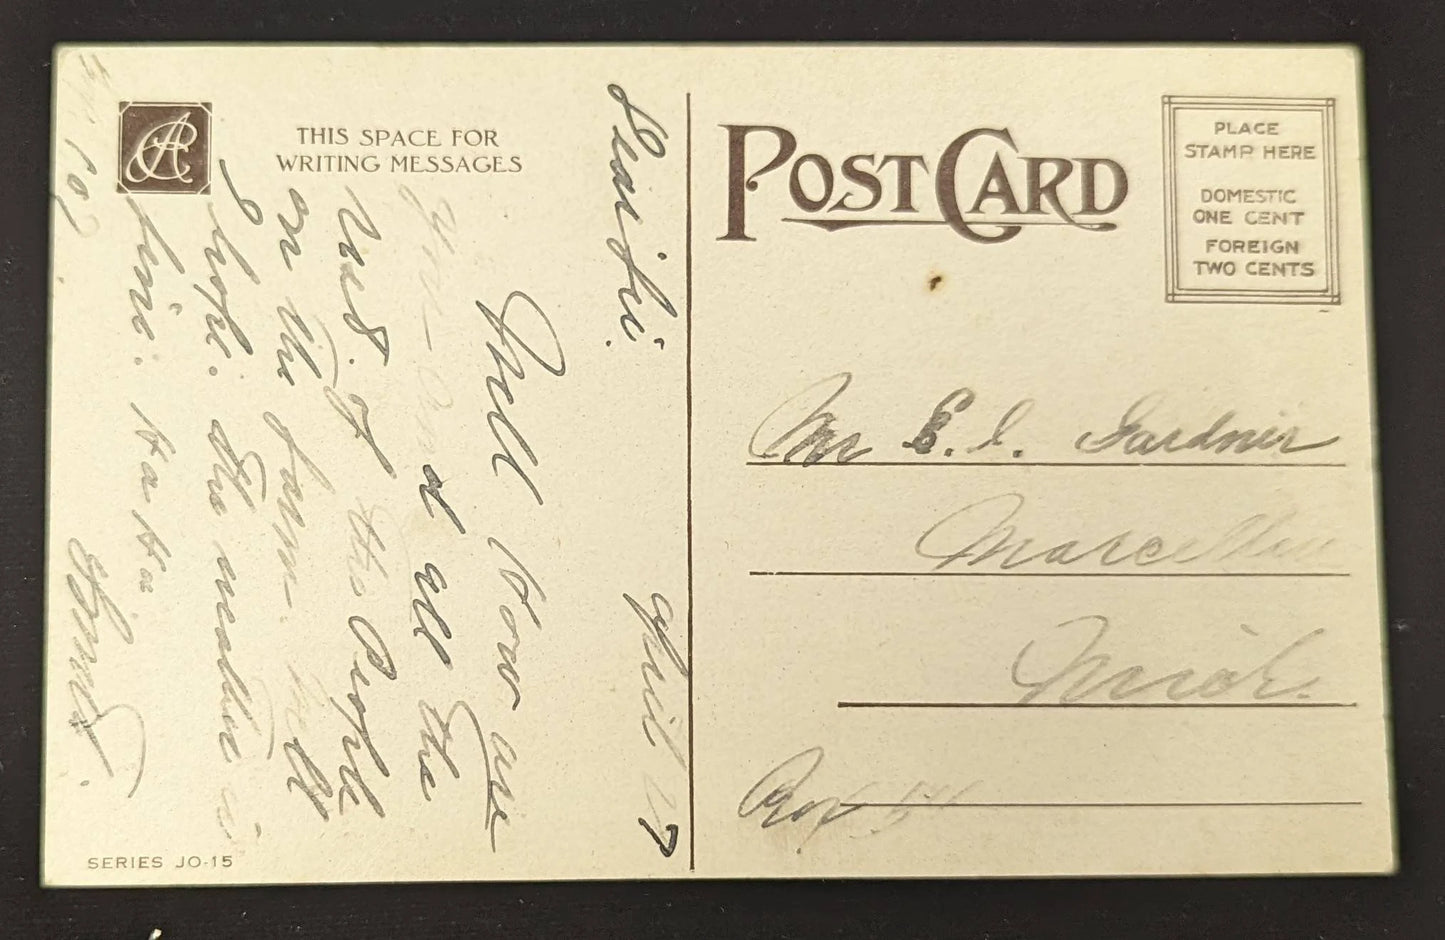 THIS SPACE FOR
WRITING MESSAGES
POST CARD
PLACE
STAMP HERE
DOMESTIC
ONE CENT
FOREIGN
TWO CENTS
Mr E. I. Gardner
Marcellus
Mich.
Box 54
27
Well How are
you and all the
rest. of the People
on the farm. well
I hope. The weather is
fine. Ha Ha
SERIES JO-15